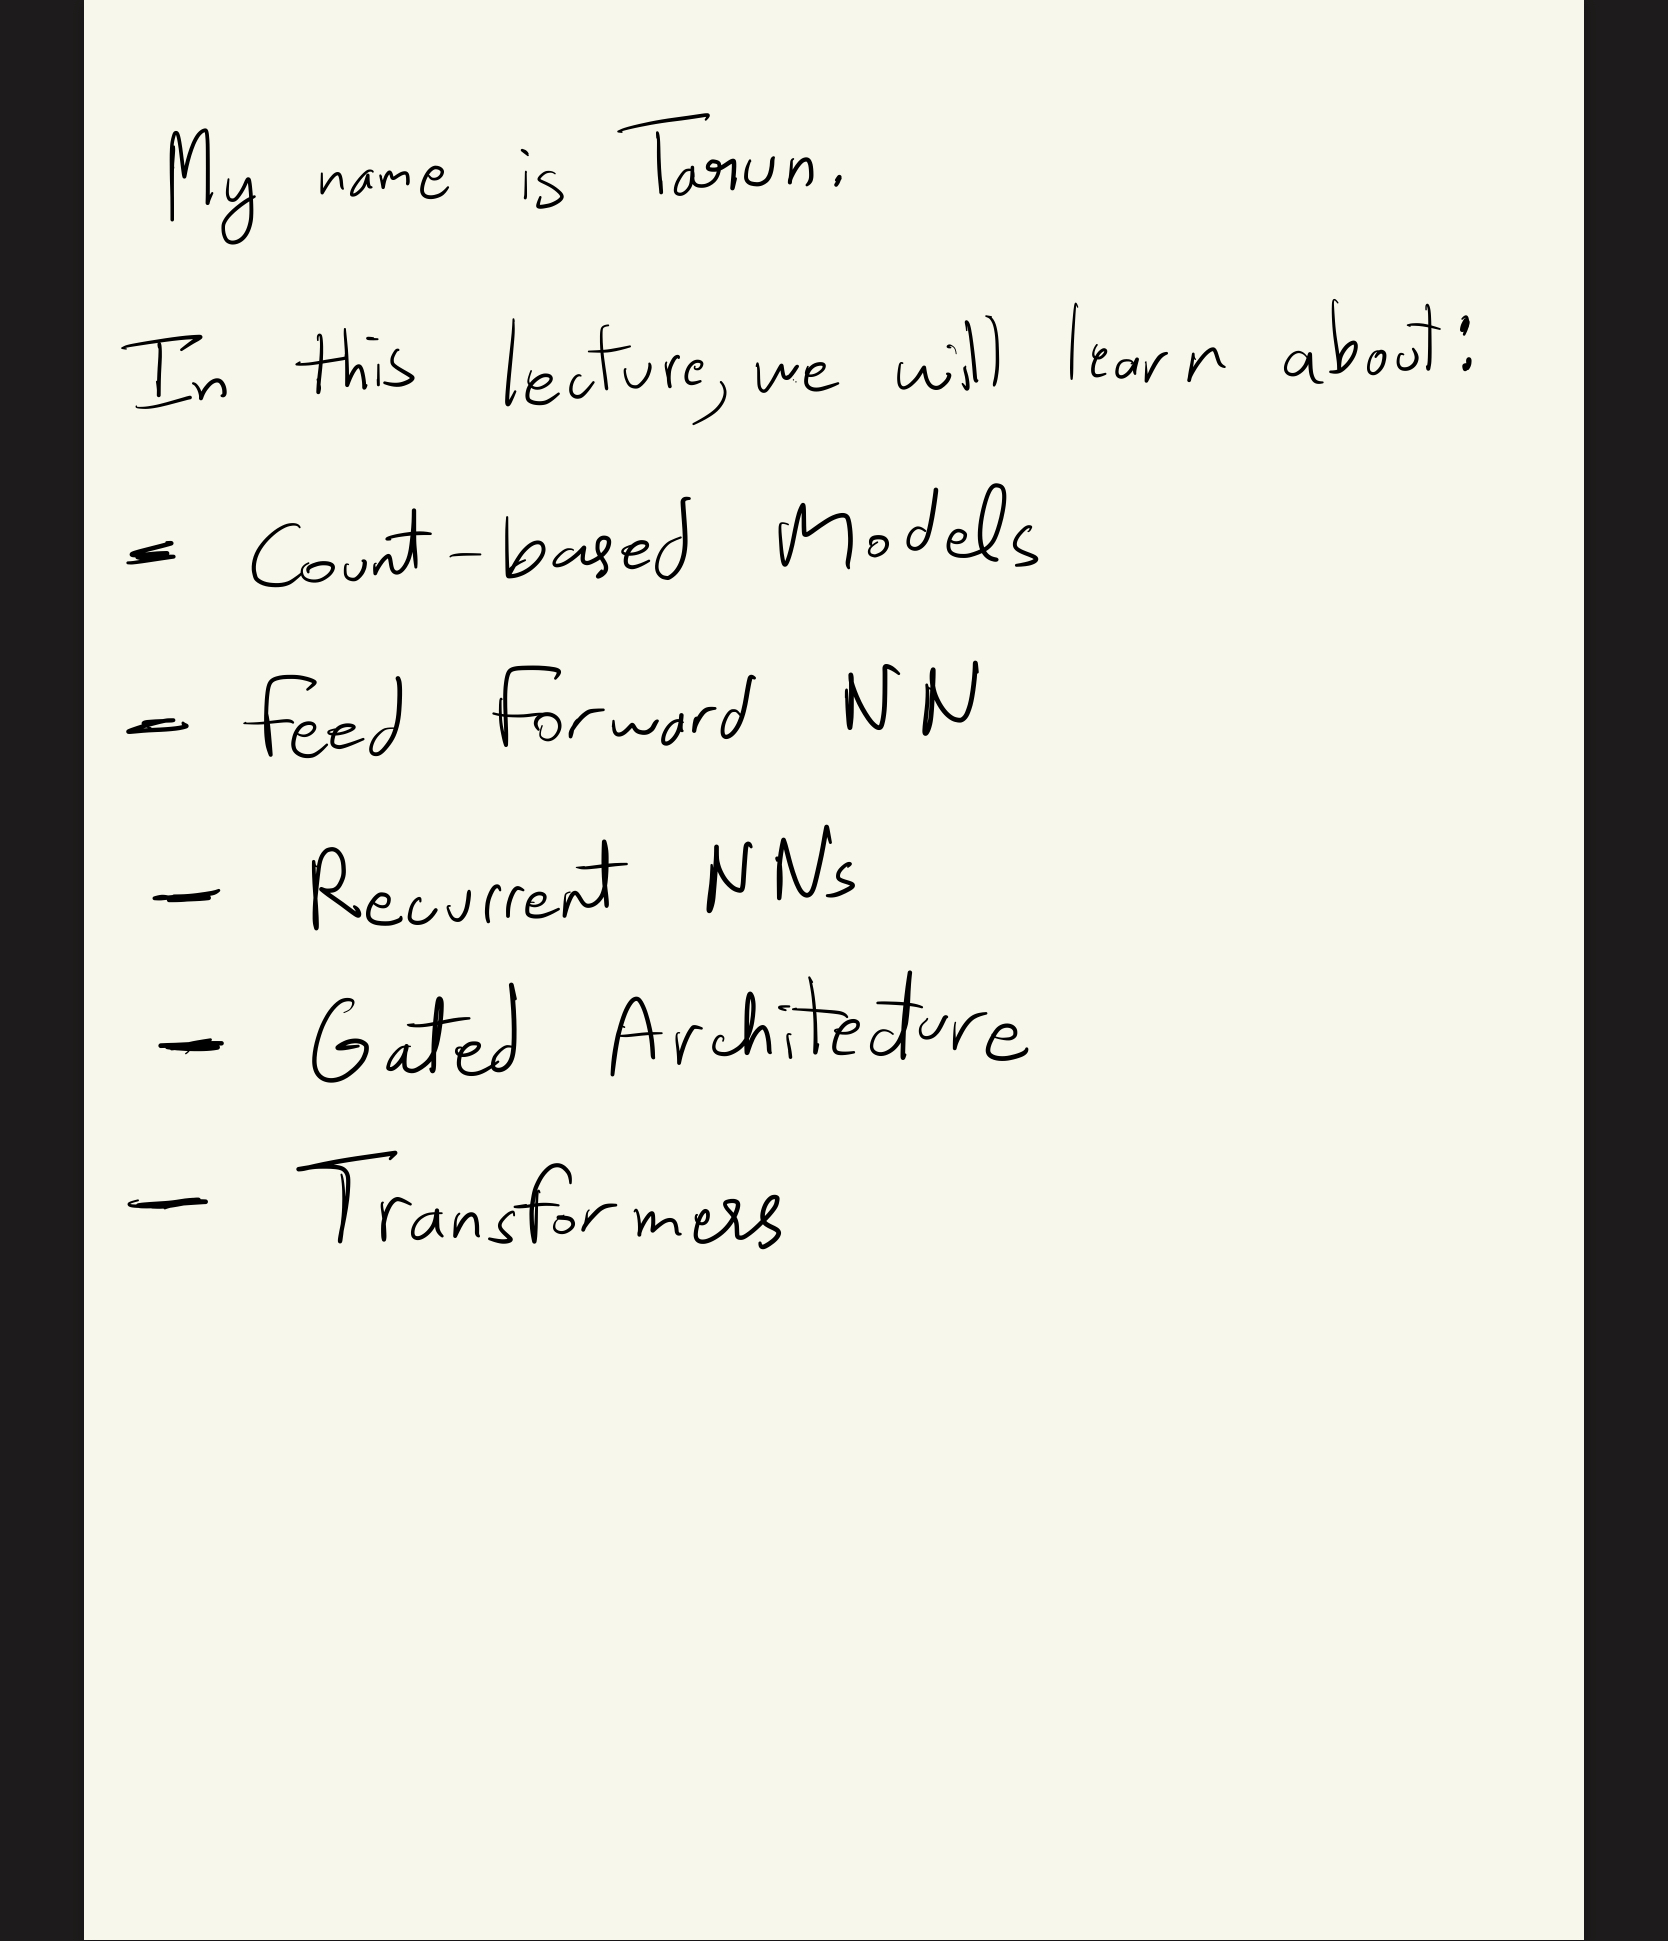 My name is Tarun.
In this lecture, we will learn about:
- Count-based Models
- Feed Forward NN
- Recurrent NNs
- Gated Architecture
- Transformers